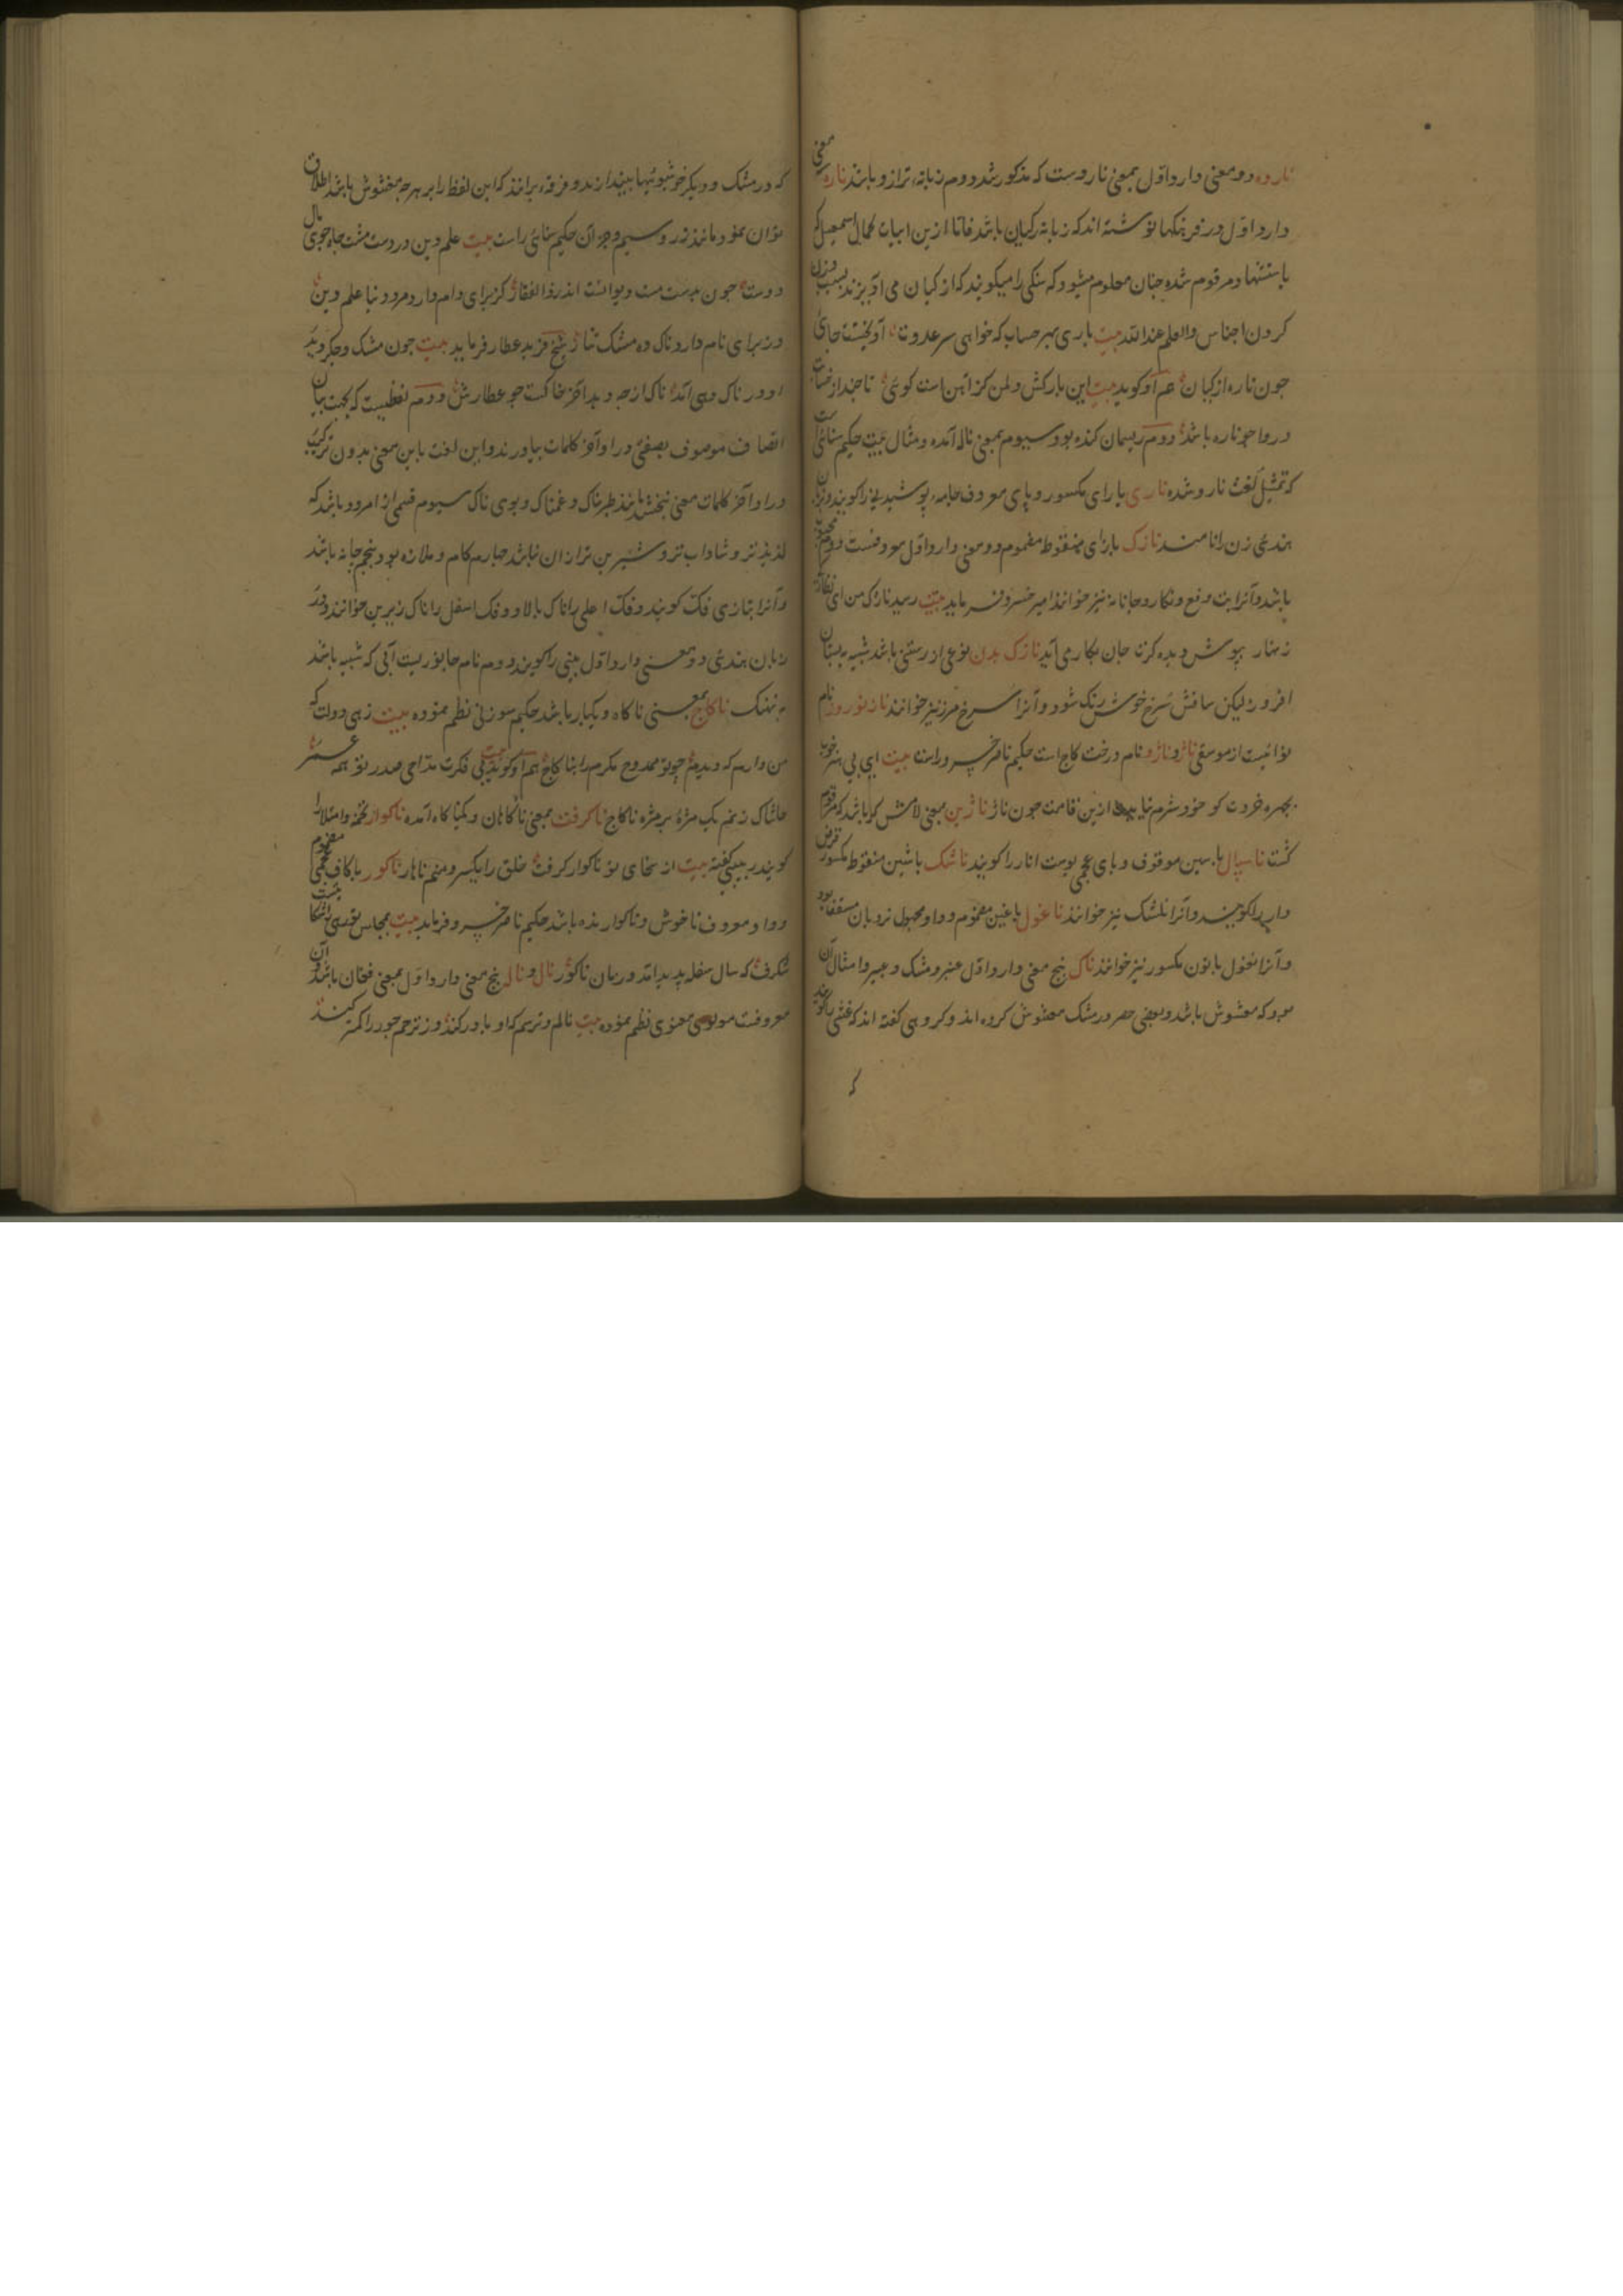 ناروه دو معنی دارد اول بمعنی ناروست که مذکور شد دوم زبانه ترازو باشد ناره سه معنی
دارد اول در فرهنگها نوشته اند که زبانه کپان باشد فاما ازین ابیات کمال اسمعیل که
باستشهاد مرقوم شده چنان معلوم میشود که سنکی را میکویند که از کپان می آویزند بسبب وزن
کردن اجناس والعلم عند الله بیت باری بهر حساب که خواهی سر عدوت آویخته جای
چون ناره از کپان هم او کوید بیت این بارکش ولمن کز آهن است کوئی تا چند از
دروا چو ناره باشد دوم ریسمان کنده بود سیوم بمعنی ناله آمده و مثال بیت حکیم سنائی
که تمثیل لغت نار و شده ناری با رای مکسور و یای معروف جامه پوشیدنی را کویند و بزبان
هندی زن را نامند نازک با زای منقوط مضموم دو معنی دارد اول معروفست دوم محبوب
باشد و آنرا بت و فغ و نکار و جانانه نیز خوانند امیر خسرو فرماید بیت رسید نازک من ای نظاره
زنهار بپوش دیده کزت جان بکار می آید نازک بدن نوعی از رستنی باشد شبیه به بستان
افروز لیکن ساقش سرخ خوش رنک شود و آنرا سرخ مرز نیز خوانند ناز نوروز نام
نوائیست از موسقی ناژ و ناژو نام درخت کاج است حکیم ناصر خسرو راست بیت ای بی هنر خوب
بچهره خردت کو خود شرم نیاید ازین قامت چون ناژ ناژین بمعنی لامش کر باشد که مرقوم
کشت ناسپال با سین موقوف و بای عجمی پوست انار را کویند ناشک با شین منقوط مکسور قرض
دار را کویند و آنرا نلشک نیز خوانند ناغول با غین مضموم و واو مجهول نردبان مسقف بود
و آنرا نغول با نون مکسور نیز خوانند ناک پنج معنی دارد اول عنبر و مشک و عبیر و امثال آن
بود که مغشوش باشد و بعضی حصر در مشک مغشوش کرده اند و کروهی کفته اند که غشی را کویند
که
که در مشک و دیکر خوشبوئیها بیندازند و فرقه برانند که این لفظ را بر هر چه مغشوش باشد اطلاق
توان نمود مانند زر و سیم وجز آن حکیم سنائی راست بیت علم دین در دست مشت جاه جوی مال
دوست چون بدست مست و دیوانست اندر ذوالفقار کز برای دام دارد مرد دنیا علم دین
وز برای نام دارد ناک ده مشک تتار شیخ فرید عطار فرماید بیت چون مشک و جکر دید
او در ناک دهی آمد ناک از چه دهد آخر خاکت چو عطارش دوم لفظیست که بجهت بیان
اتصاف موصوف بصفتی در اواخر کلمات بیاورند و این لغت باین معنی بدون ترکیب
در اواخر کلمات معنی نبخشد مانند طربناک و غمناک و بوی ناک سیوم قسمی از امرود باشد که
لذیذتر و شاداب تر و شیرین تر از ان نباشد چهارم کام و ملازه بود پنجم چانه باشد
و آنرا بتازی فک کویند و فک اعلی را ناک بالا و فک اسفل را ناک زیرین خوانند و در
زبان هندی دو معنی دارد اول بینی را کویند دوم نام جانوریست آبی که شبیه باشد
به نهنک ناکاج بمعنی ناکاه و یکبار باشد حکیم سوزنی نظم نموده بیت زهی دولت که
من دارم که دیدم چو تو ممدوح مکرم را بناکاج هم او کوید بیت بی فکرت مدّاحی صدر تو همه عمر
حاشاک زنم یک مژه بر مژه ناکاج ناکرفت بمعنی ناکاهان و یکناکاه آمده ناکوار تخمه و امتلا را
کویند ربیبی کفته بیت از سخای تو ناکوار کرفت خلق را یکسر و منم ناهار ناکور با کاف عجمی مضموم
و واو معروف ناخوش و ناکوارنده باشد حکیم ناصر خسرو فرماید بیت بمجاس تو
شکرف که سال سفله پدید آمد و زمان ناکور نال و ناله پنج معنی دارد اول بمعنی فغان باشد و آن
معروفست مولوی معنوی نظم نموده بیت نالم و ترسم که او باور کند وز ترحم جور را کمتر کند